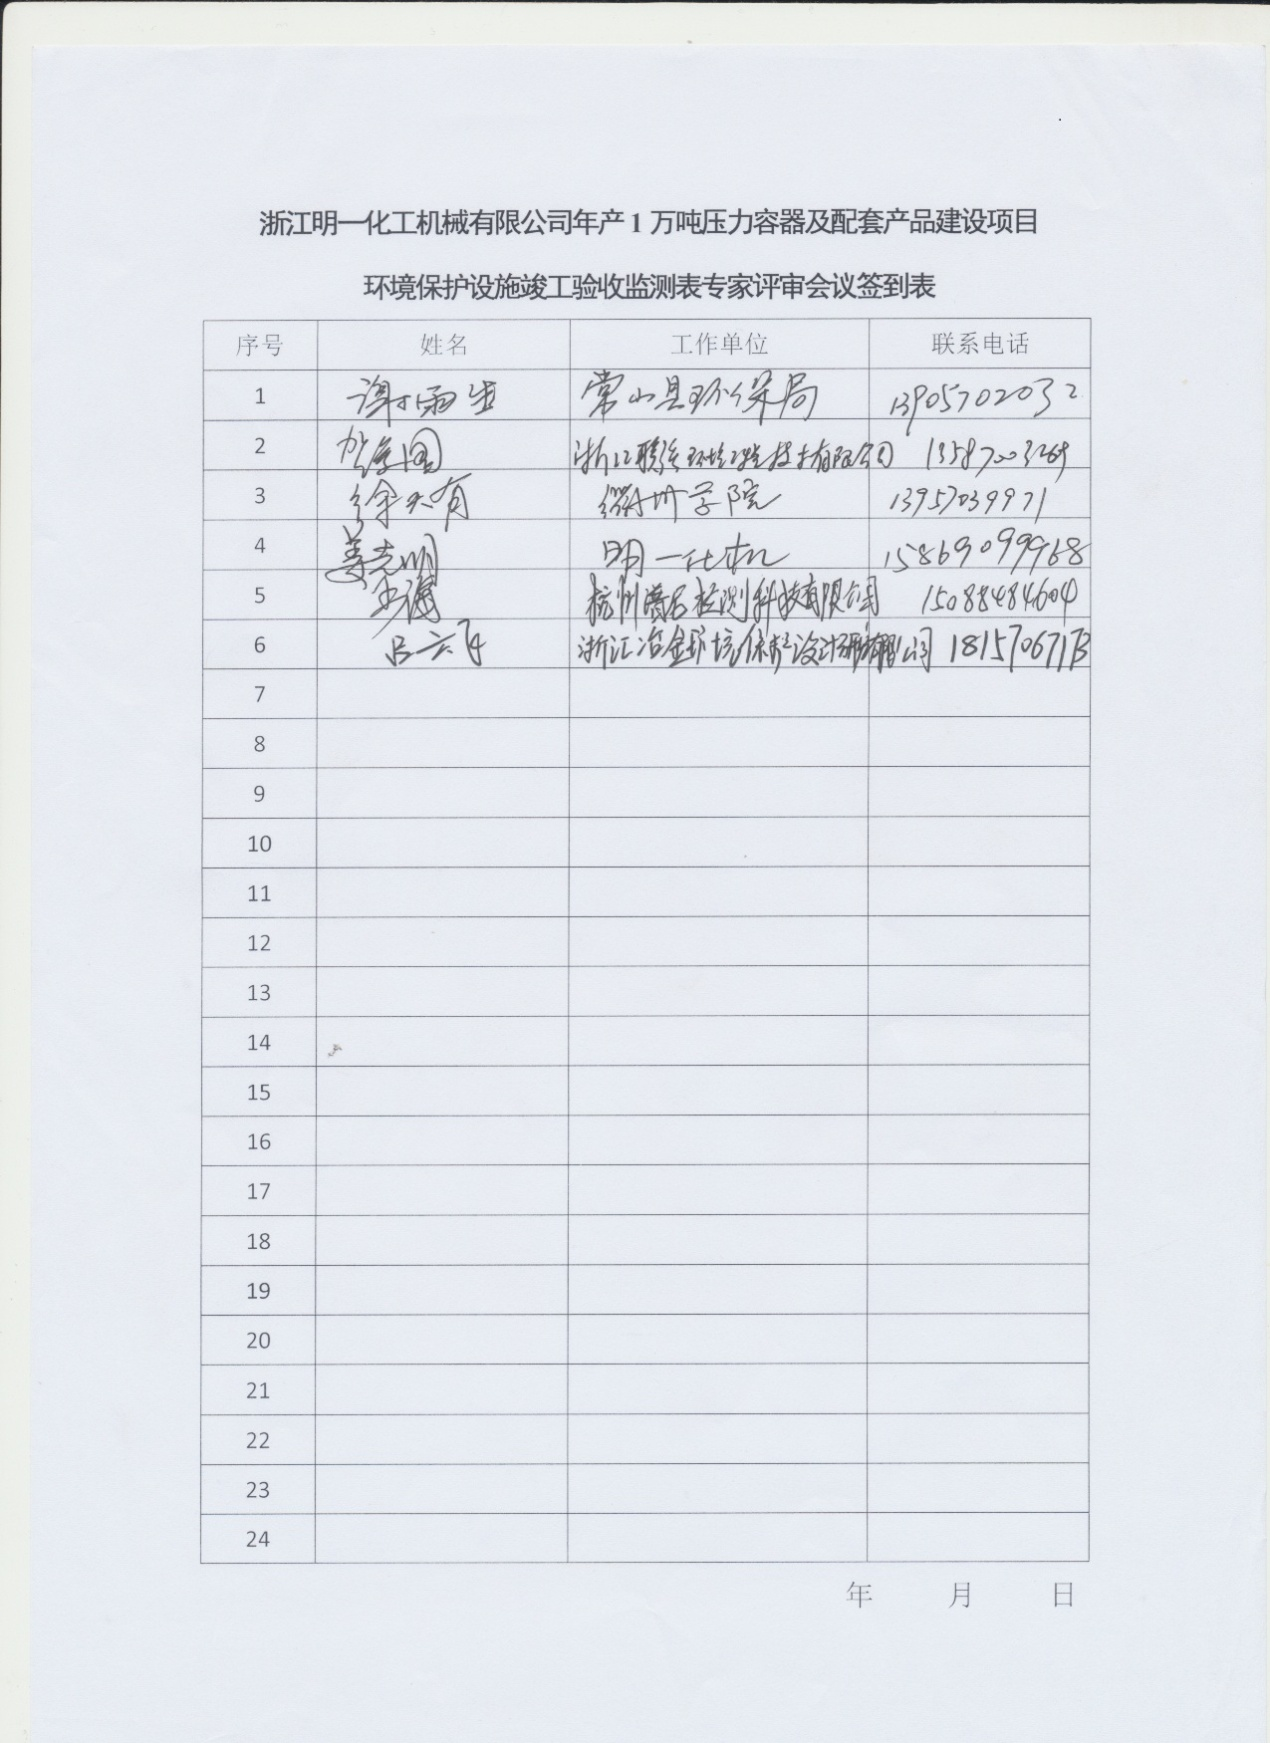 浙江明一化工机械有限公司年产 1 万吨压力容器及配套产品建设项目
环境保护设施竣工验收监测表专家评审会议签到表
序号 姓名 工作单位 联系电话
1 谢雨生 常山县环保局 13905702032
2 浙江联强环境工程技术有限公司 13587003269
3 徐天有 衢州学院 13957039971
4 姜志明 明一化机 15869099968
5 杭州普尼检测科技有限公司 15088484604
6 吕云飞 浙江冶金环境保护设计研究有限公司
7
8
9
10
11
12
13
14
15
16
17
18
19
20
21
22
23
24
年 月 日